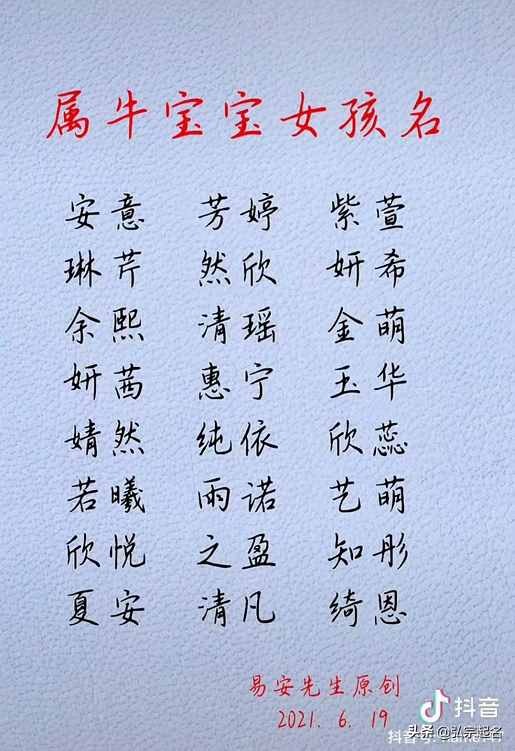 属牛宝宝女孩名
安意 芳婷 紫萱
琳芹 然欣 妍希
余熙 清瑶 金萌
妍茜 惠宁 玉华
婧然 纯依 欣蕊
若曦 雨诺 艺萌
欣悦 之盈 知彤
夏安 清凡 绮恩
易安先生原创
2021. 6. 19
抖音
头条@弘宗起名